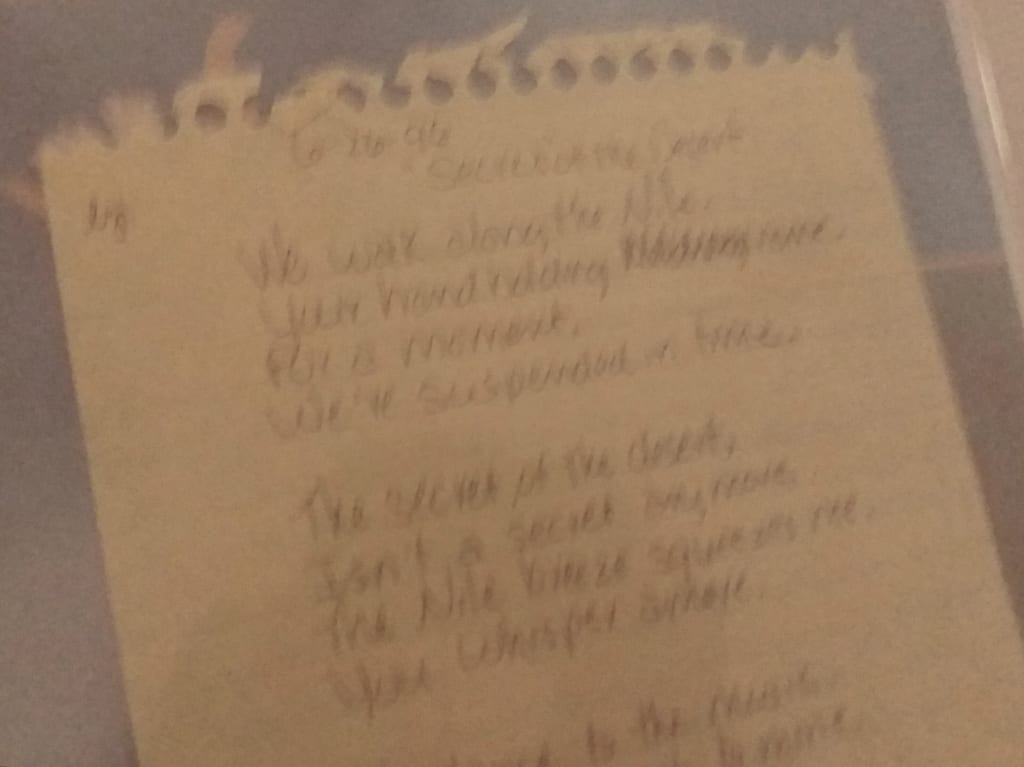 Secret of the Desert
We walk along the Nile.
Your hand holding mine.
For a moment,
We're suspended in time.
The secret of the desert,
Isn't a secret anymore
The Nile breeze squeezes me.
Your whisper
to the music.
to mine.